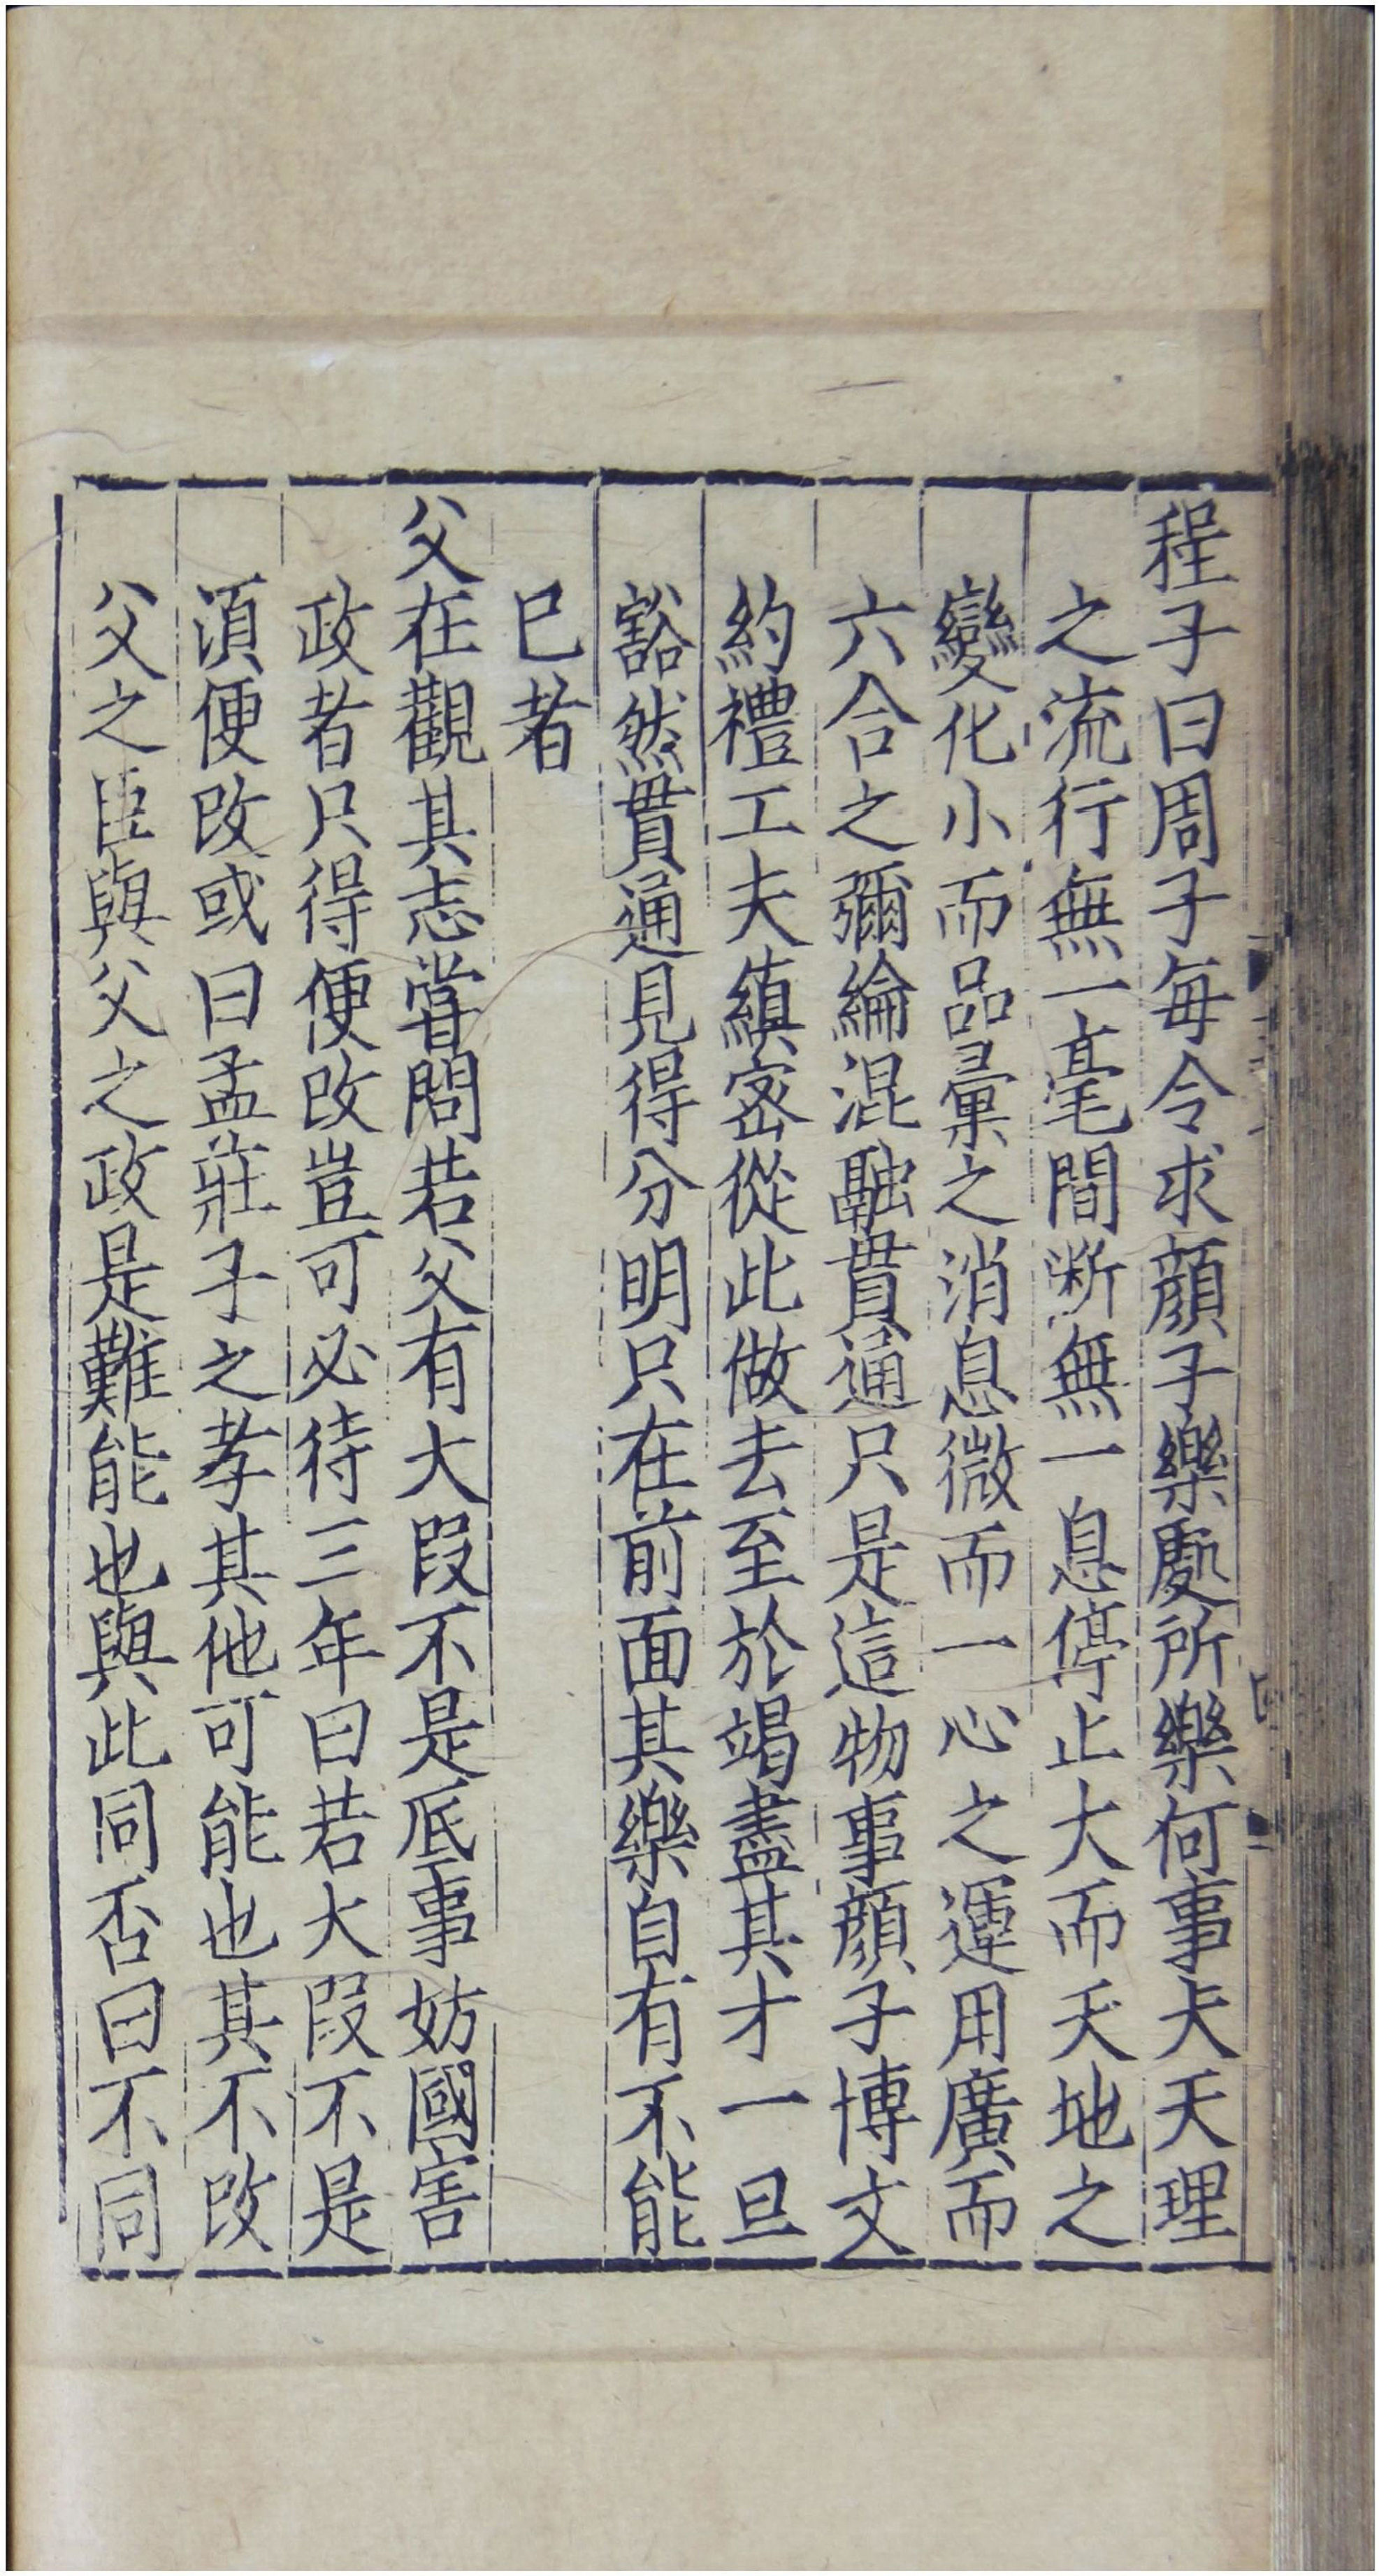 程子曰周子每令求顔子樂處所樂何事夫天理
之流行無一毫間断無一息停止大而天地之
變化小而品彙之消息微而一心之運用廣而
六合之彌綸混融貫通只是這物事顔子博文
約禮工夫縝宻從此做去至於竭盡其才一旦
豁然貫通見得分明只在前面其樂自有不能
已者
父在觀其志嘗問若父有大段不是底事妨國害
政者只得便改豈可必待三年曰若大段不是
須便改或曰孟莊子之孝其他可能也其不改
父之臣與父之政是難能也與此同否曰不同